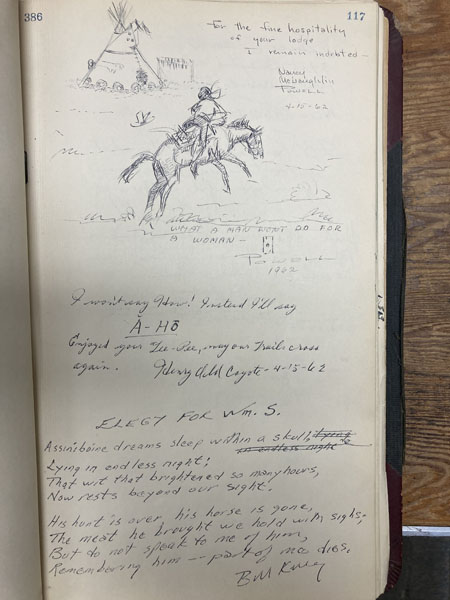 386
117
For the fine hospitality
of your lodge
I remain indebted —
Nancy
McLaughlin
Powell
4-15-62
WHAT A MAN WON'T DO FOR
A WOMAN —
POWELL
1962
I won't say How! Instead I'll say
Ă - HŌ
Enjoyed your Tee-Pee, may our trails cross
again. Henry Old Coyote - 4-15-62
ELEGY FOR Wm. S.
Assiniboine dreams sleep within a skull, lying
in endless night
Lying in endless night;
That wit that brightened so many hours,
Now rests beyond our sight.
His hunt is over his horse is gone,
The meat he brought we hold with sighs;
But do not speak to me of him,
Remembering him -- part of me dies.
Bill